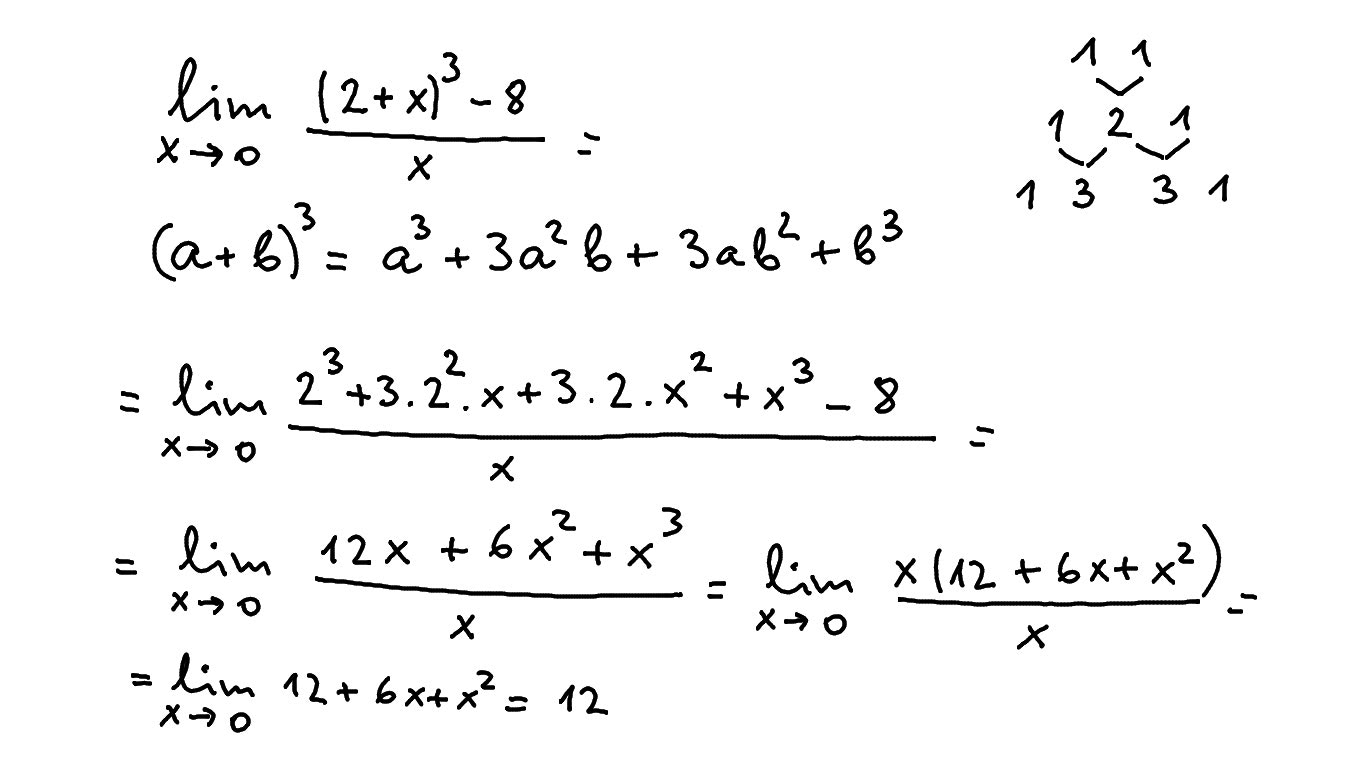 lim x→0 ((2+x)³ - 8)/x =
1 1
1 2 1
1 3 3 1
(a+b)³ = a³ + 3a²b + 3ab² + b³
= lim x→0 (2³+3.2².x+3.2.x²+x³-8)/x =
= lim x→0 (12x + 6x² + x³)/x = lim x→0 (x(12 + 6x + x²))/x =
= lim x→0 12 + 6x + x² = 12